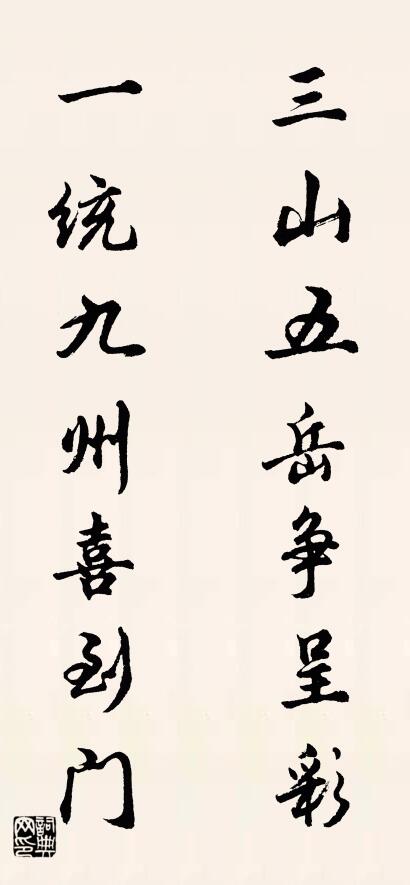 三山五岳争呈彩
一统九州喜到门
詞典网印